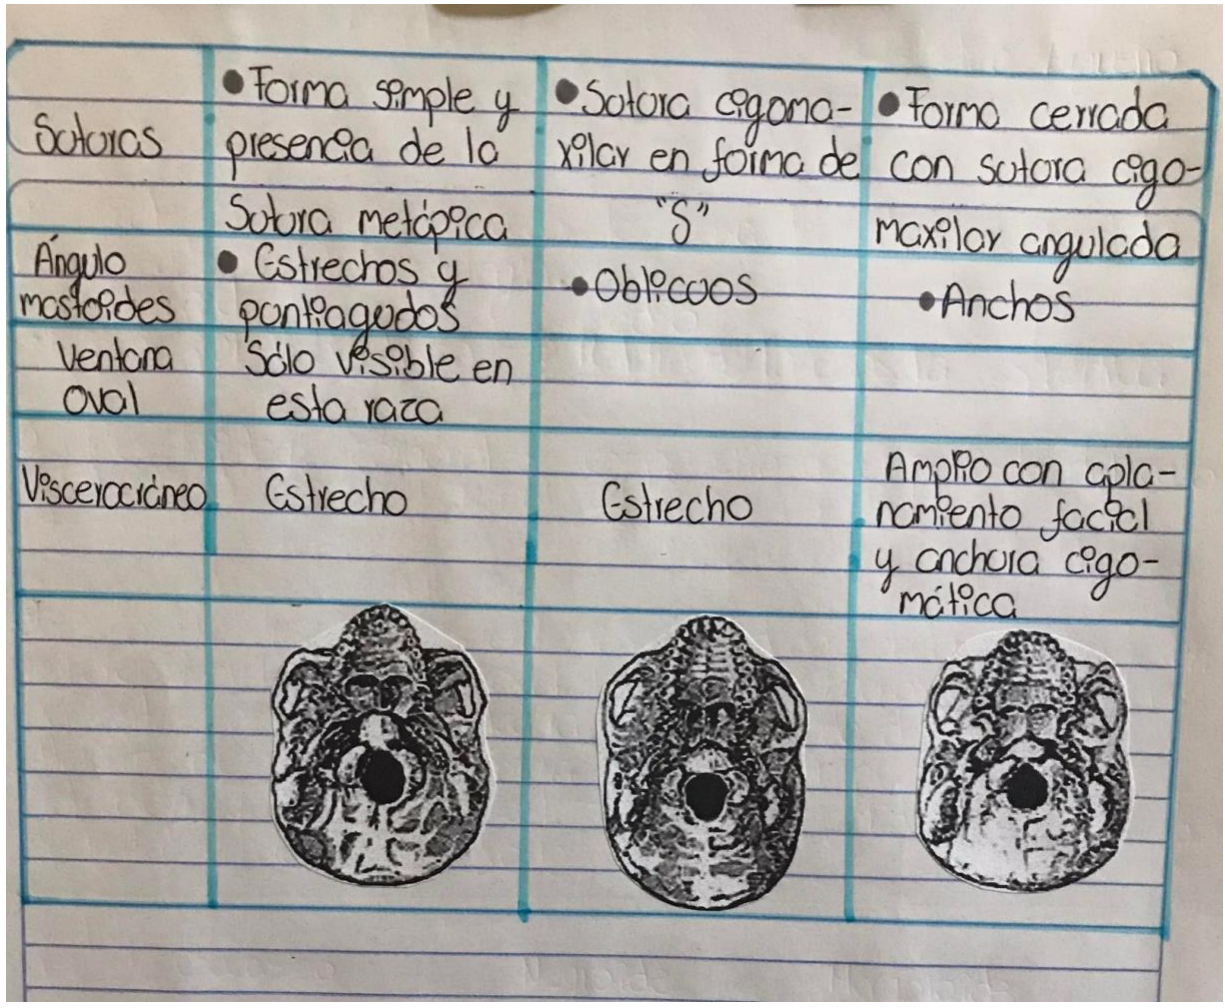 Suturas
• Forma simple y
presencia de la
Sutura metópica
• Sutura cigoma-
xilar en forma de
"S"
• Forma cerrada
con sutura cigo-
maxilar angulada
Ángulo
mastoides
• Estrechos y
puntiagudos
• Oblicuos
• Anchos
Ventana
Oval
Sólo visible en
esta raza
Viscerocráneo
Estrecho
Estrecho
Amplio con apla-
namiento facial
y anchura cigo-
mática